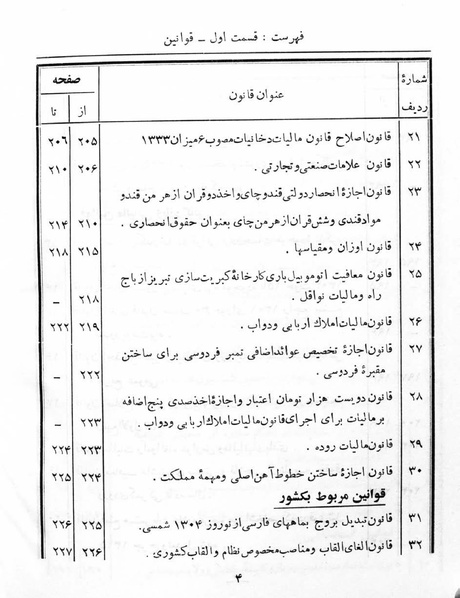 فهرست : قسمت اول – قوانین
شمارهٔ ردیف
عنوان قانون
صفحه
از
تا
۲۱ قانون اصلاح قانون مالیات دخانیات مصوب ۶ میزان ۱۳۳۳ ۲۰۵ ۲۰۶
۲۲ قانون علامات صنعتی و تجارتی . ۲۰۶ ۲۱۰
۲۳ قانون اجازهٔ انحصار دولتی قند و چای و اخذ دو قران از هر من قند و
مواد قندی و شش قران از هر من چای بعنوان حقوق انحصاری . ۲۱۰ ۲۱۴
۲۴ قانون اوزان و مقیاسها . ۲۱۵ ۲۱۸
۲۵ قانون معافیت اتوموبیل باری کارخانهٔ کبریت سازی تبریز از باج
راه و مالیات نواقل . ۲۱۸ –
۲۶ قانون مالیات املاک اربابی و دواب . ۲۱۹ ۲۲۲
۲۷ قانون اجازهٔ تخصیص عوائد اضافی تمبر فردوسی برای ساختن
مقبرهٔ فردوسی . ۲۲۲ –
۲۸ قانون دویست هزار تومان اعتبار و اجازهٔ اخذ صدی پنج اضافه
بر مالیات برای اجرای قانون مالیات املاک اربابی و دواب . ۲۲۳ –
۲۹ قانون مالیات روده . ۲۲۳ ۲۲۴
۳۰ قانون اجازهٔ ساختن خطوط آهن اصلی و مهمهٔ مملکت . ۲۲۴ ۲۲۵
قوانین مربوط بکشور
۳۱ قانون تبدیل بروج بماههای فارسی از نوروز ۱۳۰۴ شمسی. ۲۲۵ ۲۲۶
۳۲ قانون الغای القاب و مناصب مخصوص نظام و القاب کشوری . ۲۲۶ ۲۲۷
۴